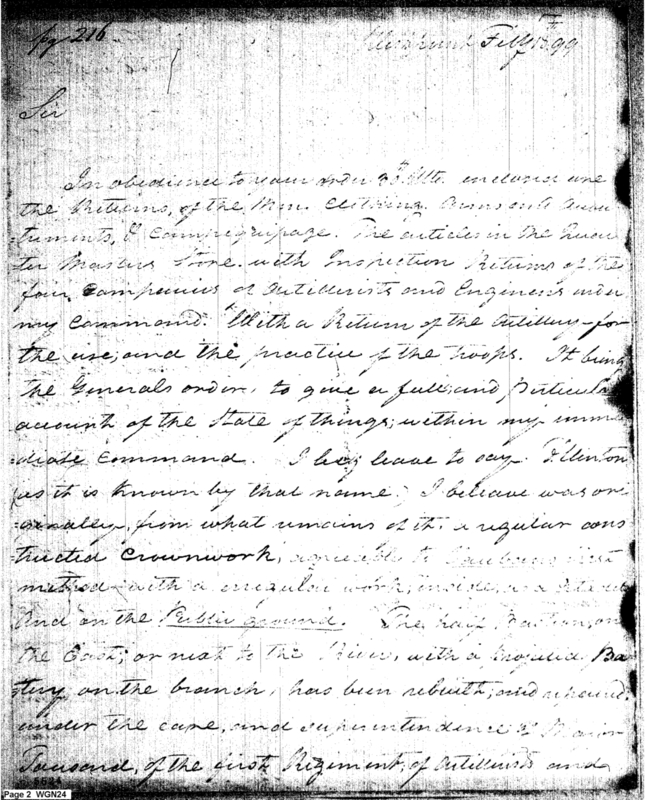 pg 216
Feby 15th 99
Sir
In obedience to your order of 7th Ulto. enclosed are
the Returns, of the Men. Clothing. Arms and Accou
truments, & Campequipage. The articles in the Quar
ter Masters Store. with Inspection Returns of the
four Companies of Artillerists and Engineers under
my Command. With a Return of the Artillery for
the use, and the practice of the troops. It being
the Generals order, to give a full, and particular
account of the State of things, within my imme
diate Command. I beg leave to say. Ft Clinton
(as it is known by that name.) I beleave was ori
ginaley, from what remains of it, a regular cons
tructed Crownwork, agreeable to Vaubans first
method with a irregular work, inside, as a
And on the Public ground. The half Bastion, on
the East; or next to the River, with a Ba
tery on the branch, has been rebuilt, and repaired.
under the care, and superintendence of Major
Tousard, of the first Regiment, of Artillerists and
Page 2 WGN24